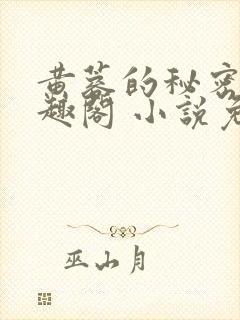 黄蓉的秘密
趣阁 小説免
巫山月